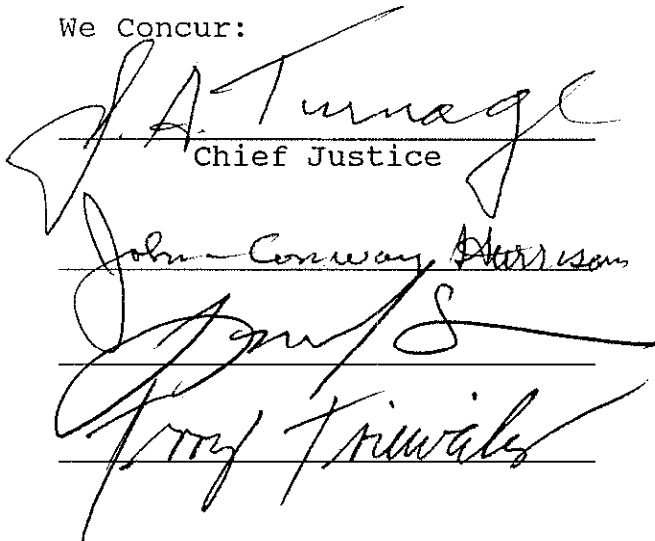 We Concur:
J. A. Turnage
Chief Justice
John Conway Harrison
Terry Trieweiler